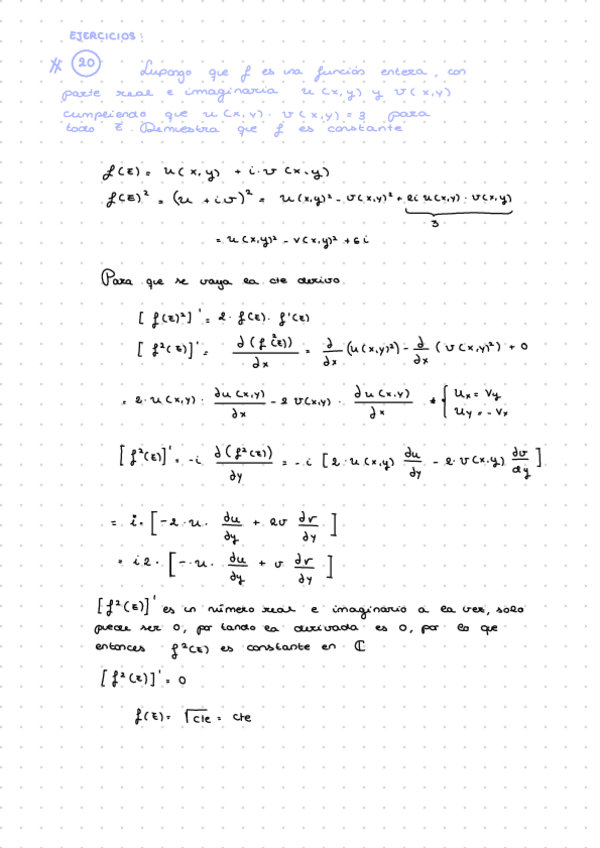 EJERCICIOS:
# 20 Supongo que f es una función entera, con
parte real e imaginaria u(x,y) y v(x,y)
cumpliendo que u(x,y)·v(x,y) = 3 para
todo z. Demuestra que f es constante
f(z) = u(x,y) + i·v(x,y)
f(z)² = (u + iv)² = u(x,y)² - v(x,y)² + 2i u(x,y)·v(x,y)
3
= u(x,y)² - v(x,y)² + 6i
Para que se vaya la cte derivo.
[f(z)²]' = 2·f(z)·f'(z)
[f²(z)]' = ∂(f²(z))/∂x = ∂/∂x (u(x,y)²) - ∂/∂x (v(x,y)²) + 0
= 2·u(x,y)·∂u(x,y)/∂x - 2v(x,y)·∂u(x,y)/∂x * { ux = vy
uy = -vx
[f²(z)]' = -i ∂(f²(z))/∂y = -i [2·u(x,y) ∂u/∂y - 2·v(x,y) ∂v/∂y]
= i·[-2·u·∂u/∂y + 2v ∂v/∂y]
= i2·[-u·∂u/∂y + v ∂v/∂y]
[f²(z)]' es un número real e imaginario a la vez, solo
puede ser 0, por tando la derivada es 0, por lo que
entonces f²(z) es constante en ℂ
[f²(z)]' = 0
f(z) = √cte = cte